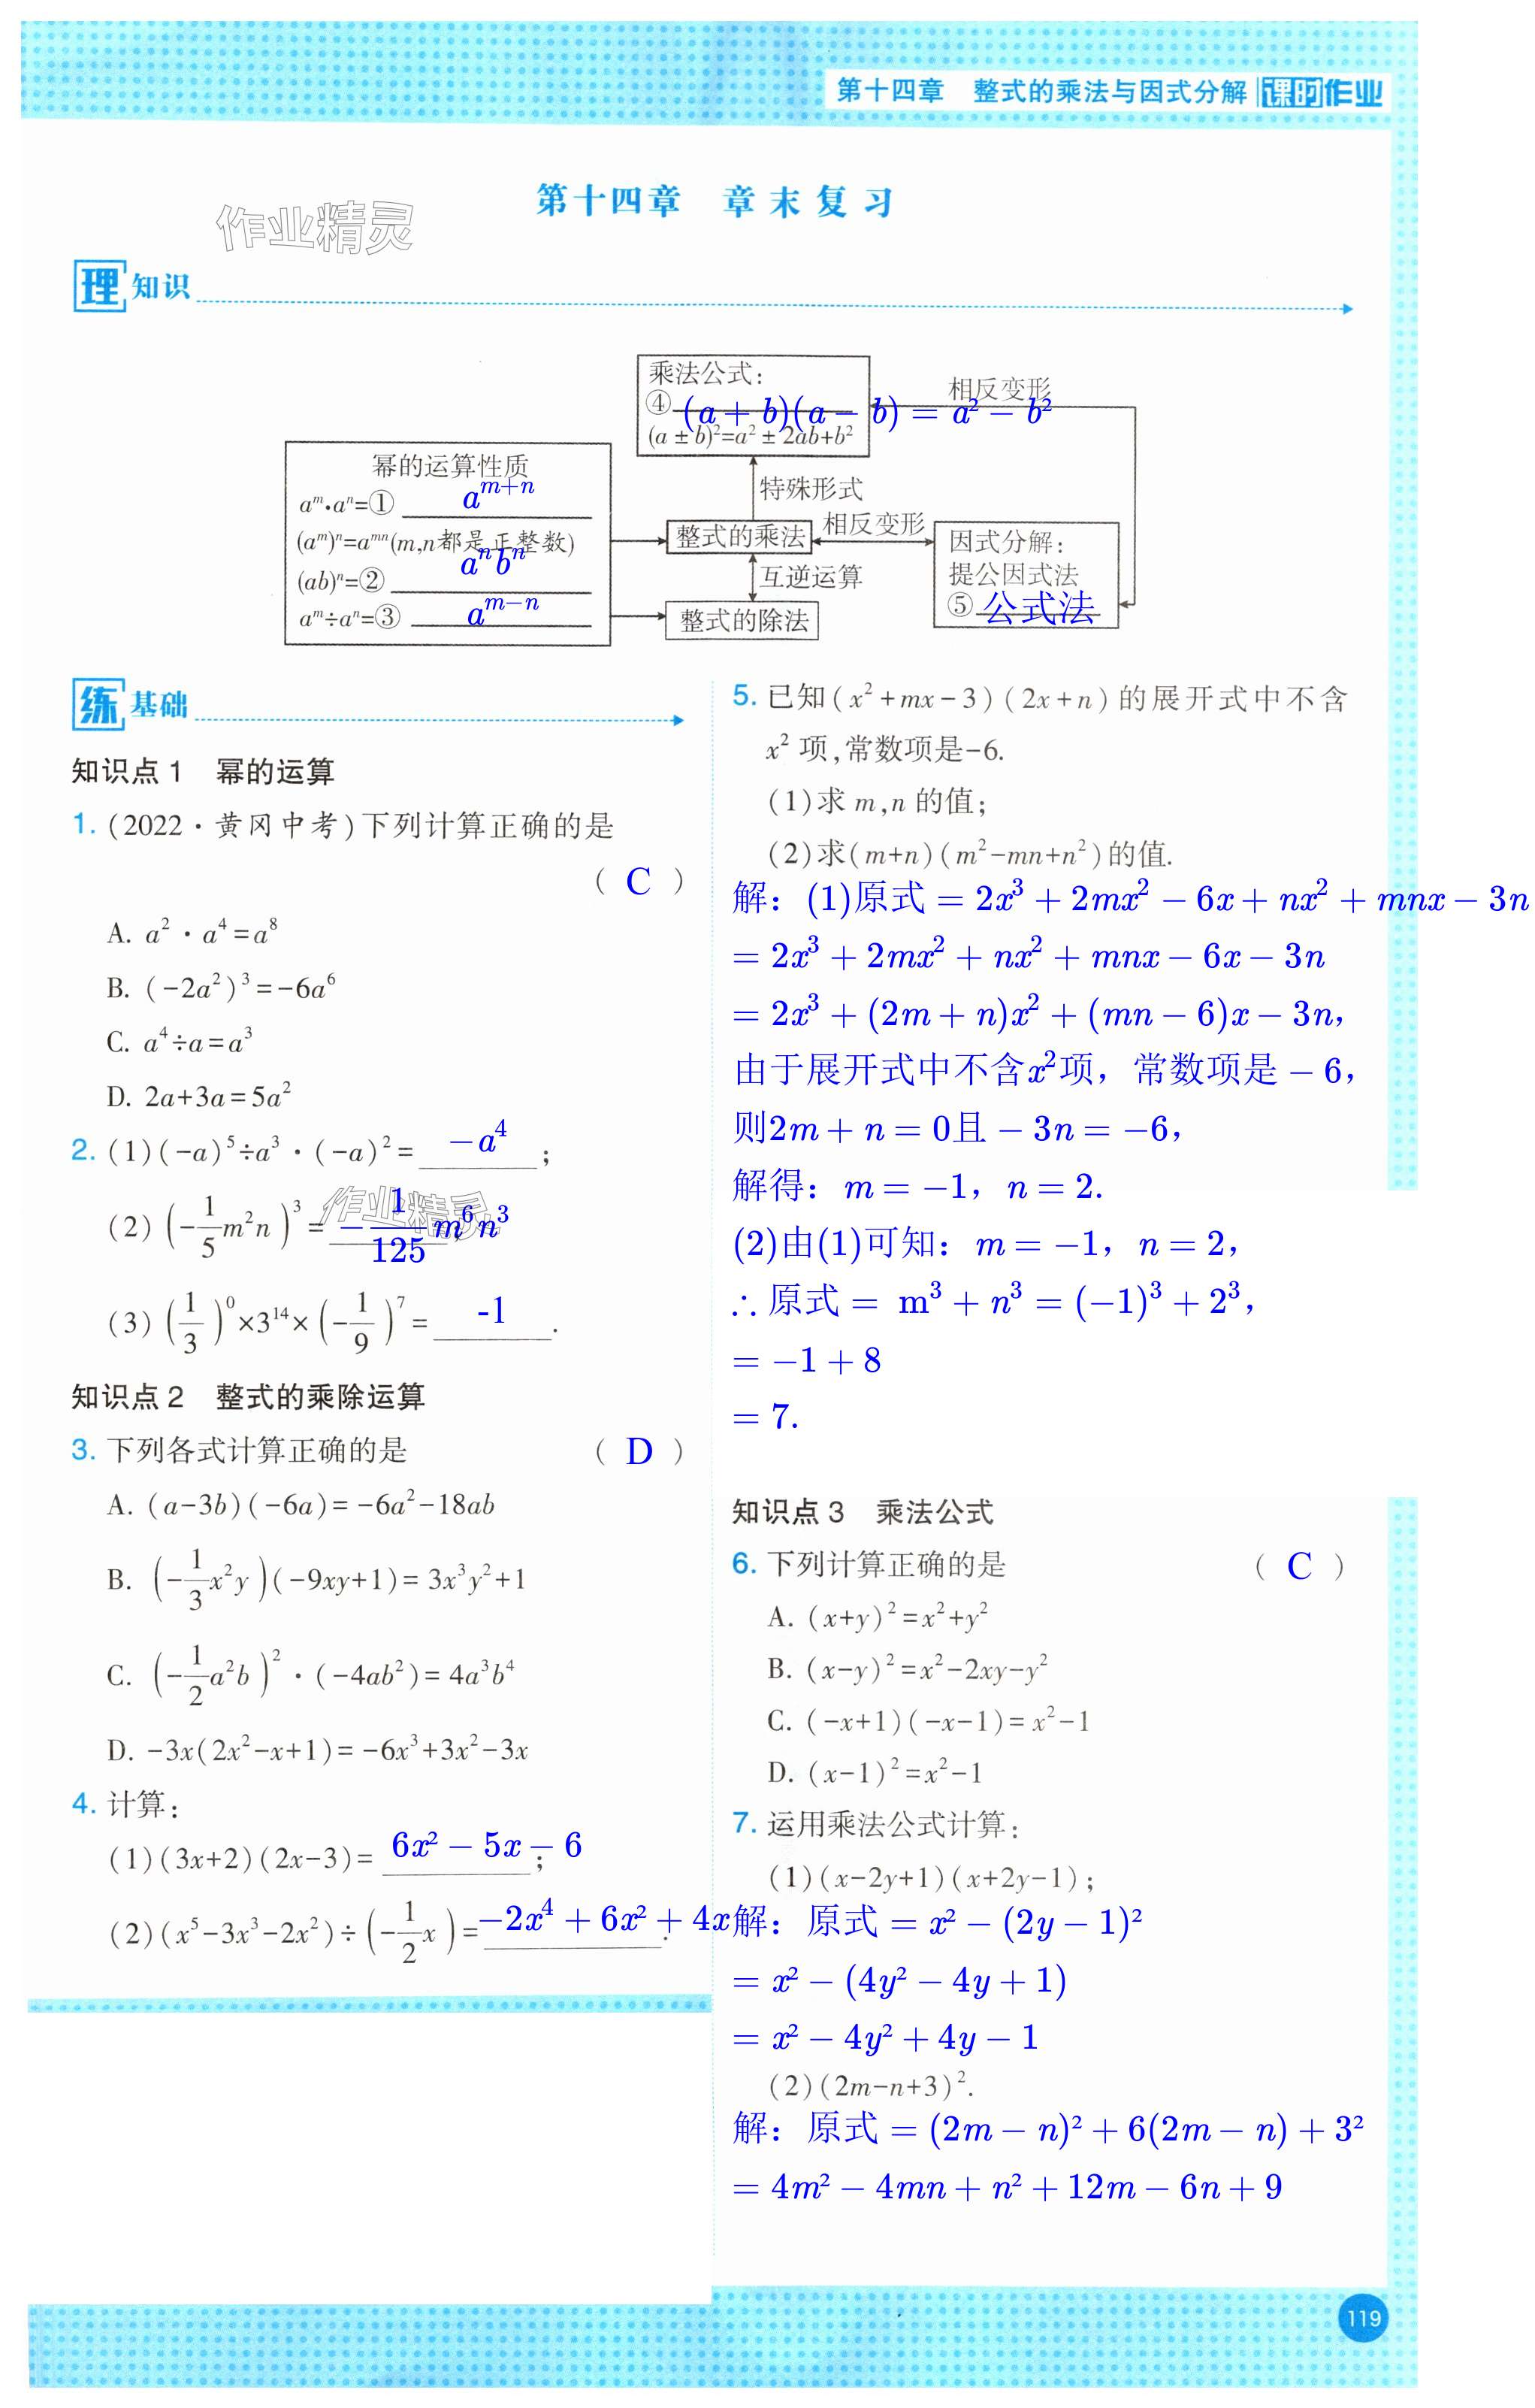 第十四章 整式的乘法与因式分解 课时作业
第十四章 章末复习
作业精灵
理 知识
乘法公式:
④ (a + b)(a − b) = a² − b²
(a ± b)²=a² ± 2ab+b²
相反变形
幂的运算性质
aᵐ·aⁿ=① aᵐ⁺ⁿ
(aᵐ)ⁿ=aᵐⁿ(m,n都是正整数)
(ab)ⁿ=② aⁿbⁿ
aᵐ÷aⁿ=③ aᵐ⁻ⁿ
特殊形式
整式的乘法
相反变形
互逆运算
整式的除法
因式分解:
提公因式法
⑤ 公式法
练 基础
知识点 1 幂的运算
1. (2022 · 黄冈中考)下列计算正确的是
( C )
A. a² · a⁴=a⁸
B. (-2a²)³=-6a⁶
C. a⁴÷a=a³
D. 2a+3a=5a²
2. (1)(-a)⁵÷a³ · (-a)²= −a⁴ ;
(2) (-1/5 m²n)³= −1/125 m⁶n³ ;
作业精灵
(3) (1/3)⁰×3¹⁴×(-1/9)⁷= -1 .
知识点 2 整式的乘除运算
3. 下列各式计算正确的是 ( D )
A. (a-3b)(-6a)= -6a²-18ab
B. (-1/3 x²y)(-9xy+1)= 3x³y²+1
C. (-1/2 a²b)² · (-4ab²)= 4a³b⁴
D. -3x(2x²-x+1)= -6x³+3x²-3x
4. 计算:
(1)(3x+2)(2x-3)= 6x² − 5x − 6 ;
(2)(x⁵-3x³-2x²)÷(-1/2 x)= −2x⁴ + 6x² + 4x .
5. 已知(x²+mx-3)(2x+n)的展开式中不含
x² 项,常数项是-6.
(1)求 m,n 的值;
(2)求(m+n)(m²-mn+n²)的值.
解：(1)原式 = 2x³ + 2mx² − 6x + nx² + mnx − 3n
= 2x³ + 2mx² + nx² + mnx − 6x − 3n
= 2x³ + (2m + n)x² + (mn − 6)x − 3n，
由于展开式中不含x²项，常数项是 − 6，
则2m + n = 0且 − 3n = −6，
解得：m = −1，n = 2.
(2)由(1)可知：m = −1，n = 2，
∴ 原式 = m³ + n³ = (−1)³ + 2³，
= −1 + 8
= 7.
知识点 3 乘法公式
6. 下列计算正确的是 ( C )
A. (x+y)²=x²+y²
B. (x-y)²=x²-2xy-y²
C. (-x+1)(-x-1)= x²-1
D. (x-1)²=x²-1
7. 运用乘法公式计算:
(1)(x-2y+1)(x+2y-1);
解：原式 = x² − (2y − 1)²
= x² − (4y² − 4y + 1)
= x² − 4y² + 4y − 1
(2)(2m-n+3)².
解：原式 = (2m − n)² + 6(2m − n) + 3²
= 4m² − 4mn + n² + 12m − 6n + 9
119